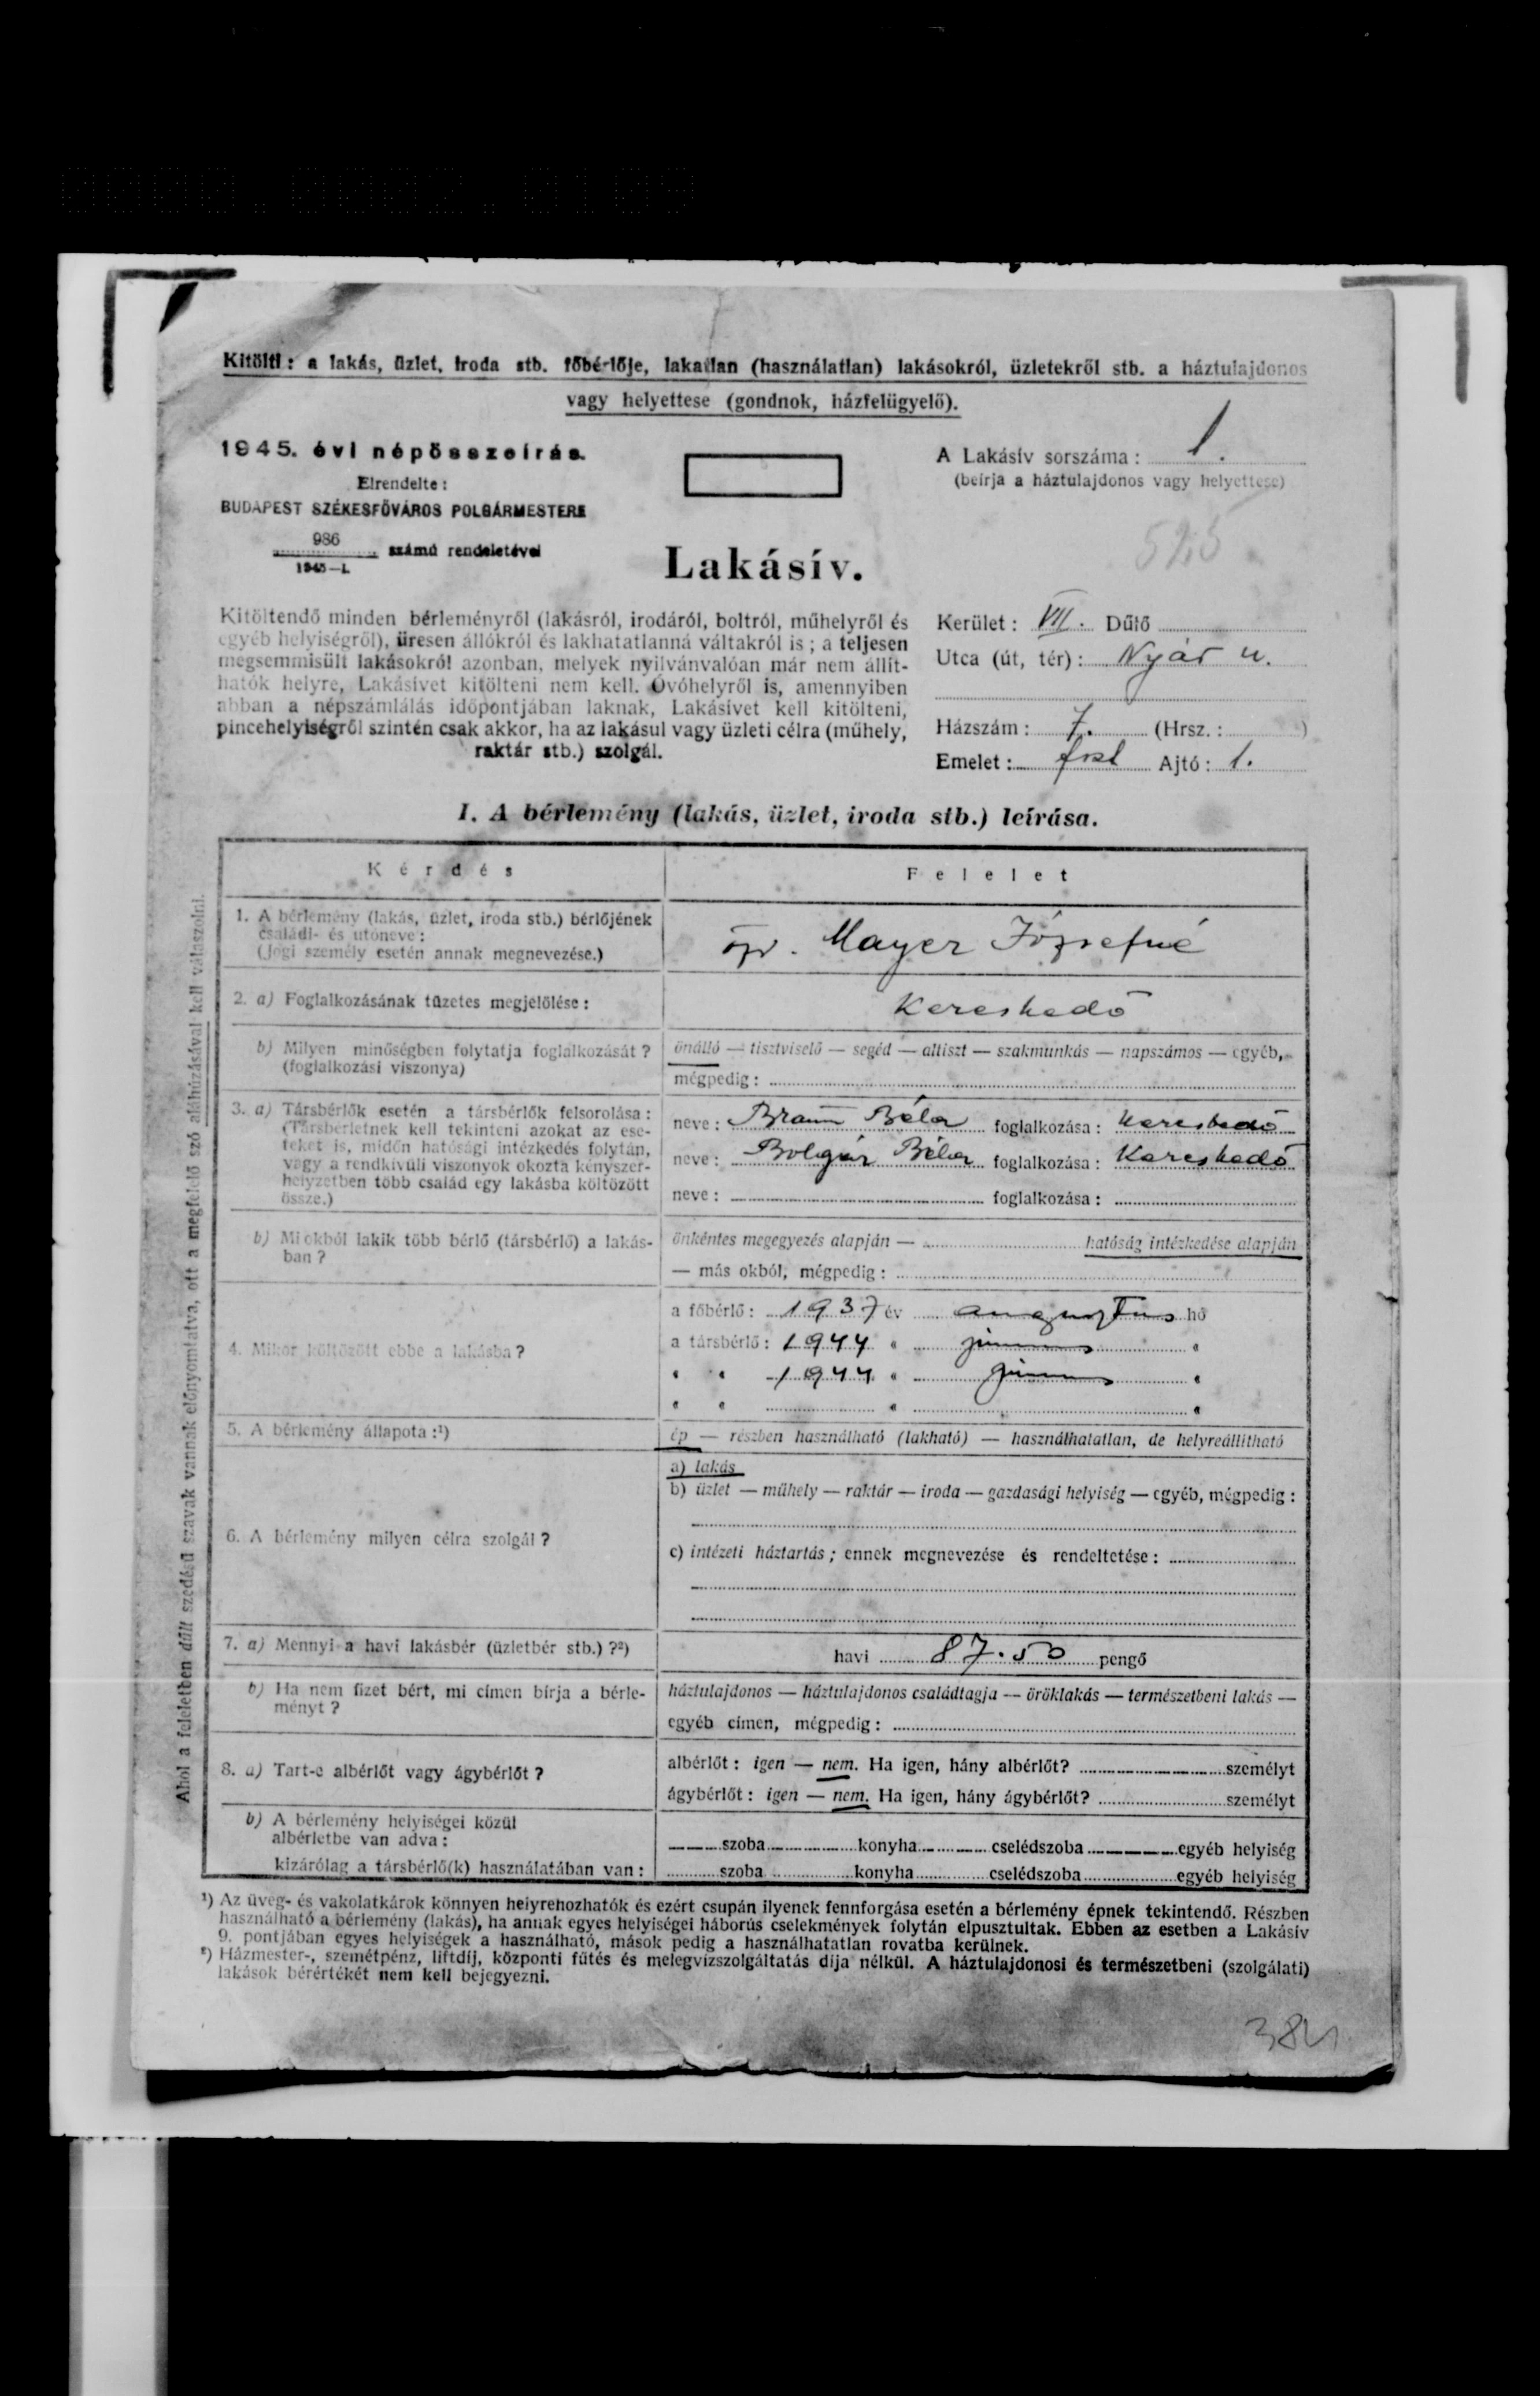 0000.0002.0109
Kitölti: a lakás, üzlet, iroda stb. főbérlője, lakatlan (használatlan) lakásokról, üzletekről stb. a háztulajdonos
vagy helyettese (gondnok, házfelügyelő).
1945. évi népösszeírás.
Elrendelte:
BUDAPEST SZÉKESFŐVÁROS POLGÁRMESTERE
986
1945—I. számú rendeletével
A Lakásív sorszáma: 1.
(beírja a háztulajdonos vagy helyettese)
Lakásív.
Kitöltendő minden bérleményről (lakásról, irodáról, boltról, műhelyről és
egyéb helyiségről), üresen állókról és lakhatatlanná váltakról is; a teljesen
megsemmisült lakásokról azonban, melyek nyilvánvalóan már nem állít-
hatók helyre, Lakásívet kitölteni nem kell. Óvóhelyről is, amennyiben
abban a népszámlálás időpontjában laknak, Lakásívet kell kitölteni,
pincehelyiségről szintén csak akkor, ha az lakásul vagy üzleti célra (műhely,
raktár stb.) szolgál.
Kerület: VII. Dűlő
Utca (út, tér): Nyár u.
Házszám: 7. (Hrsz.: )
Emelet: fszt Ajtó: 1.
I. A bérlemény (lakás, üzlet, iroda stb.) leírása.
Kérdés Felelet
1. A bérlemény (lakás, üzlet, iroda stb.) bérlőjének
családi- és utóneve:
(Jogi személy esetén annak megnevezése.)
özv. Mayer Józsefné
2. a) Foglalkozásának tüzetes megjelölése: Kereskedő
b) Milyen minőségben folytatja foglalkozását?
(foglalkozási viszonya)
önálló — tisztviselő — segéd — altiszt — szakmunkás — napszámos — egyéb,
mégpedig:
3. a) Társbérlők esetén a társbérlők felsorolása:
(Társbérletnek kell tekinteni azokat az ese-
teket is, midőn hatósági intézkedés folytán,
vagy a rendkívüli viszonyok okozta kényszer-
helyzetben több család egy lakásba költözött
össze.)
neve: Braun Béla foglalkozása: Kereskedő
neve: Bolgár Béla foglalkozása: Kereskedő
neve: foglalkozása:
b) Mi okból lakik több bérlő (társbérlő) a lakás-
ban?
önkéntes megegyezés alapján — hatóság intézkedése alapján
— más okból, mégpedig:
4. Mikor költözött ebbe a lakásba?
a főbérlő: 1937 év augusztus hó
a társbérlő: 1944 " junius "
" " 1944 " junius "
" " " "
5. A bérlemény állapota:¹)
ép — részben használható (lakható) — használhatatlan, de helyreállítható
6. A bérlemény milyen célra szolgál?
a) lakás
b) üzlet — műhely — raktár — iroda — gazdasági helyiség — egyéb, mégpedig:
c) intézeti háztartás; ennek megnevezése és rendeltetése:
7. a) Mennyi a havi lakásbér (üzletbér stb.)?²)
havi 87.50 pengő
b) Ha nem fizet bért, mi címen bírja a bérle-
ményt?
háztulajdonos — háztulajdonos családtagja — öröklakás — természetbeni lakás —
egyéb címen, mégpedig:
8. a) Tart-e albérlőt vagy ágybérlőt?
albérlőt: igen — nem. Ha igen, hány albérlőt? személyt
ágybérlőt: igen — nem. Ha igen, hány ágybérlőt? személyt
b) A bérlemény helyiségei közül
albérletbe van adva:
szoba konyha cselédszoba egyéb helyiség
kizárólag a társbérlő(k) használatában van: szoba konyha cselédszoba egyéb helyiség
¹) Az üveg- és vakolatkárok könnyen helyrehozhatók és ezért csupán ilyenek fennforgása esetén a bérlemény épnek tekintendő. Részben
használható a bérlemény (lakás), ha annak egyes helyiségei háborús cselekmények folytán elpusztultak. Ebben az esetben a Lakásív
9. pontjában egyes helyiségek a használható, mások pedig a használhatatlan rovatba kerülnek.
²) Házmester-, szemétpénz, liftdíj, központi fűtés és melegvízszolgáltatás díja nélkül. A háztulajdonosi és természetbeni (szolgálati)
lakások bérértékét nem kell bejegyezni.
Ahol a feleletben dőlt szedésű szavak vannak előnyomtatva, ott a megfelelő szó aláhúzásával kell válaszolni.